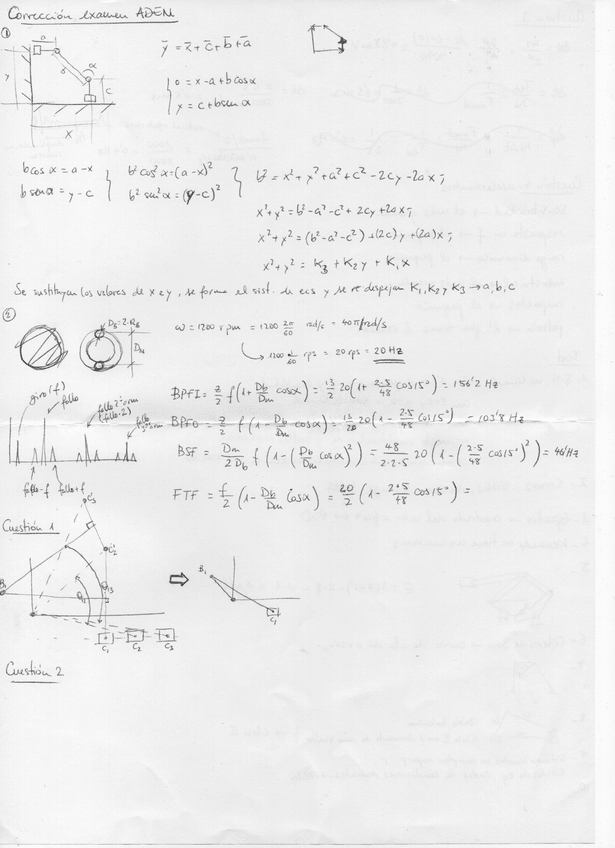 Corrección examen ADEM
①
a
b
α
c
y
x
ȳ = x̄ + c̄ + b̄ + ā
0 = x - a + b cos α
y = c + b sen α
b cos α = a - x
b sen α = y - c
b² cos² α = (a - x)²
b² sen² α = (y - c)²
b² = x² + y² + a² + c² - 2cy - 2ax ;
x² + y² = b² - a² - c² + 2cy + 2ax ;
x² + y² = (b² - a² - c²) + (2c) y + (2a) x ;
x² + y² = K₃ + K₂ y + K₁ x
Se sustituyen los valores de x e y, se forma el sist. de ecs y se despejan K₁, K₂ y K₃ → a, b, c
②
D_B = 2·R_B
D_M
ω = 1200 rpm = 1200 2π/60 rad/s = 40π rad/s
→ 1200 1/60 rps = 20 rps = 20 Hz
giro (f)
fallo
fallo 2º arm
(fallo·2)
fallo
3º arm
fallo-f
fallo+f
BPFI = z/2 f (1 + Db/Dm cos α) = 13/2 20 (1 + 2·5/48 cos 15º) = 156'2 Hz
BPFO = z/2 f (1 - Db/Dm cos α) = 13/2 20 (1 - 2·5/48 cos 15º) = 103'8 Hz
BSF = Dm/2Db f (1 - (Db/Dm cos α)²) = 48/2·2·5 20 (1 - (2·5/48 cos 15º)²) = 46'Hz
FTF = f/2 (1 - Db/Dm cos α) = 20/2 (1 - 2·5/48 cos 15º) =
Cuestión 1
C₃'
C₂'
B₁
θ₁₃
θ₁₂
C₁
C₂
C₃
B₁
C₁
Cuestión 2